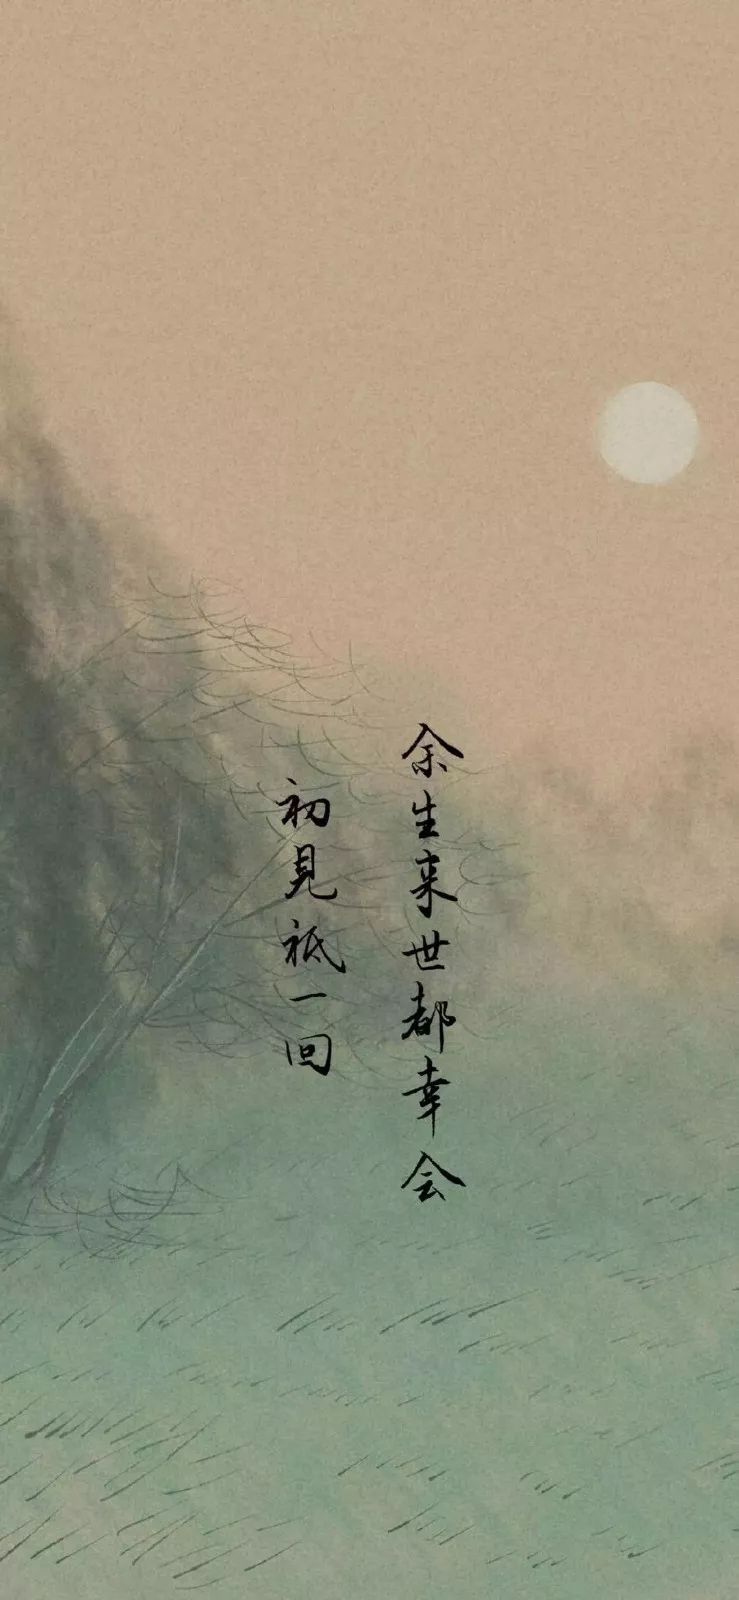 余生来世都幸会
初見祇一回